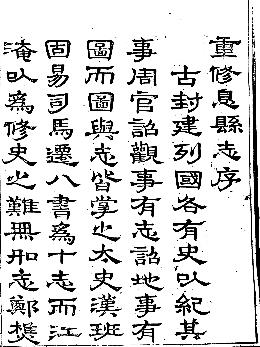 重修息縣志序
古封建列國各有史以紀其
事周官詔觀事有志詔地事有
圖而圖與志皆掌之太史漢班
固易司馬遷八書為十志而江
淹以為修史之難無出志鄭樵